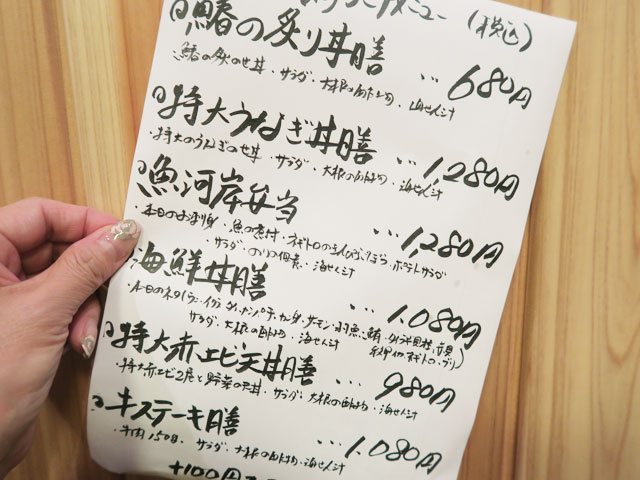 メニュー (税込)
鰆の炙り丼膳 … 680円
・鰆の炙のせ丼 ・サラダ ・大根の酢漬 ・海せん汁
特大うなぎ丼膳 … 1,280円
・特大のうなぎのせ丼 ・サラダ ・大根の酢漬 ・海せん汁
魚河岸弁当 … 1,280円
・本日のお造り ・魚の煮付 ・ネギトロの ・ポテトサラダ
・サラダ ・のりの佃煮 ・海せん汁
海鮮丼膳 … 1,080円
・本日のネタ(ウニ・イクラ サーモン
サラダ・大根の酢漬・海せん汁 ネギトロ・ブリ)
特大赤エビ天丼膳 … 980円
・特大赤エビ2尾と野菜の天丼 ・サラダ ・大根の酢漬 ・海せん汁
牛ステーキ膳 … 1,080円
・牛肉150g ・サラダ ・大根の酢漬 ・海せん汁
+100円